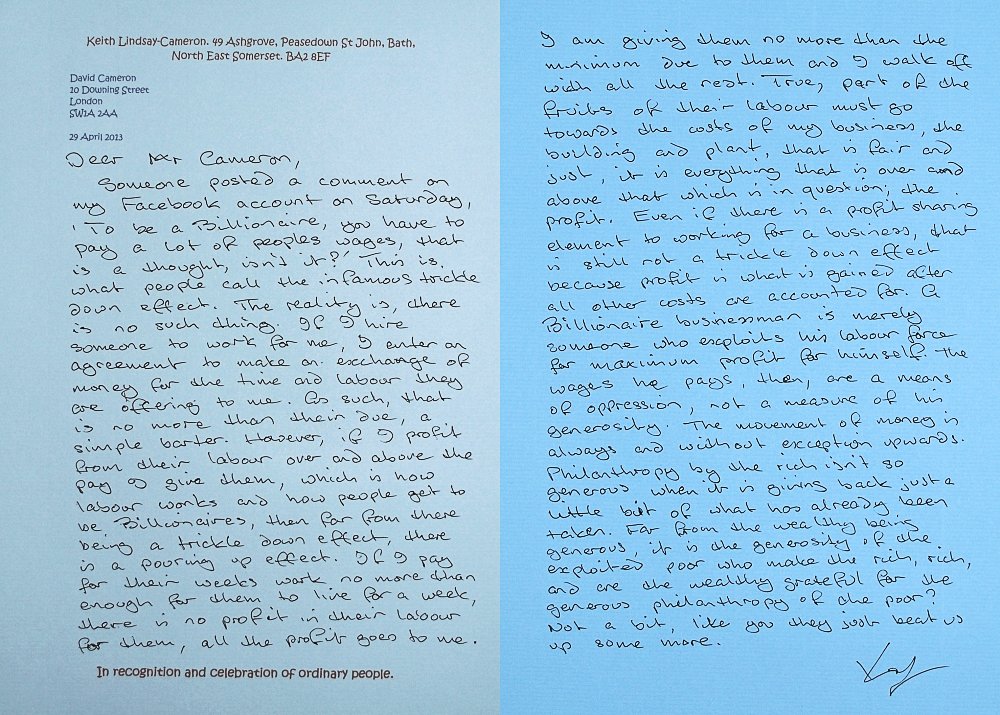 Keith Lindsay-Cameron. 49 Ashgrove, Peasedown St John, Bath,
North East Somerset. BA2 8EF
David Cameron
10 Downing Street
London
SW1A 2AA
29 April 2013
Dear Mr Cameron,
Someone posted a comment on
my Facebook account on Saturday,
'To be a Billionaire, you have to
pay a lot of peoples wages, that
is a thought, isn't it?' This is
what people call the infamous trickle
down effect. The reality is, there
is no such thing. If I hire
someone to work for me, I enter an
agreement to make an exchange of
money for the time and labour they
are offering to me. As such, that
is no more than their due, a
simple barter. However, if I profit
from their labour over and above the
pay I give them, which is how
labour works and how people get to
be Billionaires, then far from there
being a trickle down effect, there
is a pouring up effect. If I pay
for their weeks work no more than
enough for them to live for a week,
there is no profit in their labour
for them, all the profit goes to me.
In recognition and celebration of ordinary people.
I am giving them no more than the
minimum due to them and I walk off
with all the rest. True, part of the
fruits of their labour must go
towards the costs of my business, the
building and plant, that is fair and
just, it is everything that is over and
above that which is in question; the
profit. Even if there is a profit sharing
element to working for a business, that
is still not a trickle down effect
because profit is what is gained after
all other costs are accounted for. A
Billionaire businessman is merely
someone who exploits his labour force
for maximum profit for himself. The
wages he pays, then, are a means
of oppression, not a measure of his
generosity. The movement of money is
always and without exception upwards.
Philanthropy by the rich isn't so
generous when it is giving back just a
little bit of what has already been
taken. Far from the wealthy being
generous, it is the generosity of the
exploited poor who make the rich, rich,
and are the wealthy grateful for the
generous philanthropy of the poor?
Not a bit, like you they just beat us
up some more.